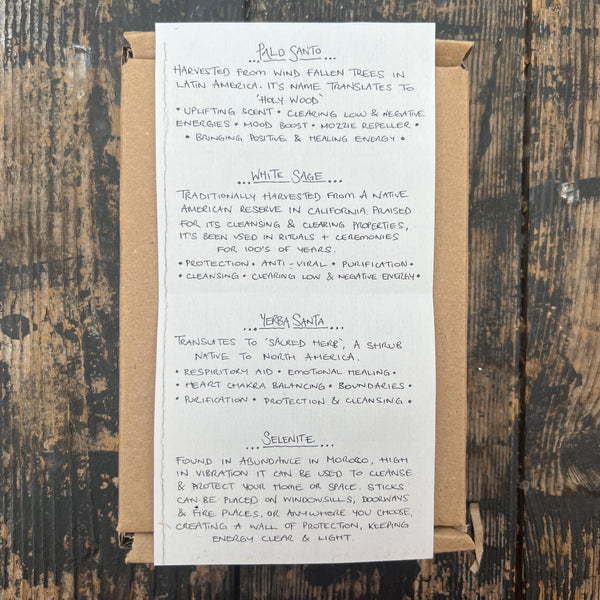 ...PALO SANTO...
HARVESTED FROM WIND FALLEN TREES IN
LATIN AMERICA. IT'S NAME TRANSLATES TO
'HOLY WOOD'
• UPLIFTING SCENT • CLEARING LOW & NEGATIVE
ENERGIES • MOOD BOOST • MOZZIE REPELLER •
• BRINGING POSITIVE & HEALING ENERGY •
...WHITE SAGE...
TRADITIONALLY HARVESTED FROM A NATIVE
AMERICAN RESERVE IN CALIFORNIA. PRAISED
FOR ITS CLEANSING & CLEARING PROPERTIES,
IT'S BEEN USED IN RITUALS + CEREMONIES
FOR 100'S OF YEARS.
• PROTECTION • ANTI-VIRAL • PURIFICATION •
• CLEANSING • CLEARING LOW & NEGATIVE ENERGY •
...YERBA SANTA...
TRANSLATES TO 'SACRED HERB', A SHRUB
NATIVE TO NORTH AMERICA.
• RESPIRITORY AID • EMOTIONAL HEALING •
• HEART CHAKRA BALANCING • BOUNDARIES •
• PURIFICATION • PROTECTION & CLEANSING •
...SELENITE...
FOUND IN ABUNDANCE IN MOROCO, HIGH
IN VIBRATION IT CAN BE USED TO CLEANSE
& PROTECT YOUR HOME OR SPACE. STICKS
CAN BE PLACED ON WINDOWSILLS, DOORWAYS
& FIRE PLACES, OR ANYWHERE YOU CHOOSE,
CREATING A WALL OF PROTECTION, KEEPING
ENERGY CLEAR & LIGHT.